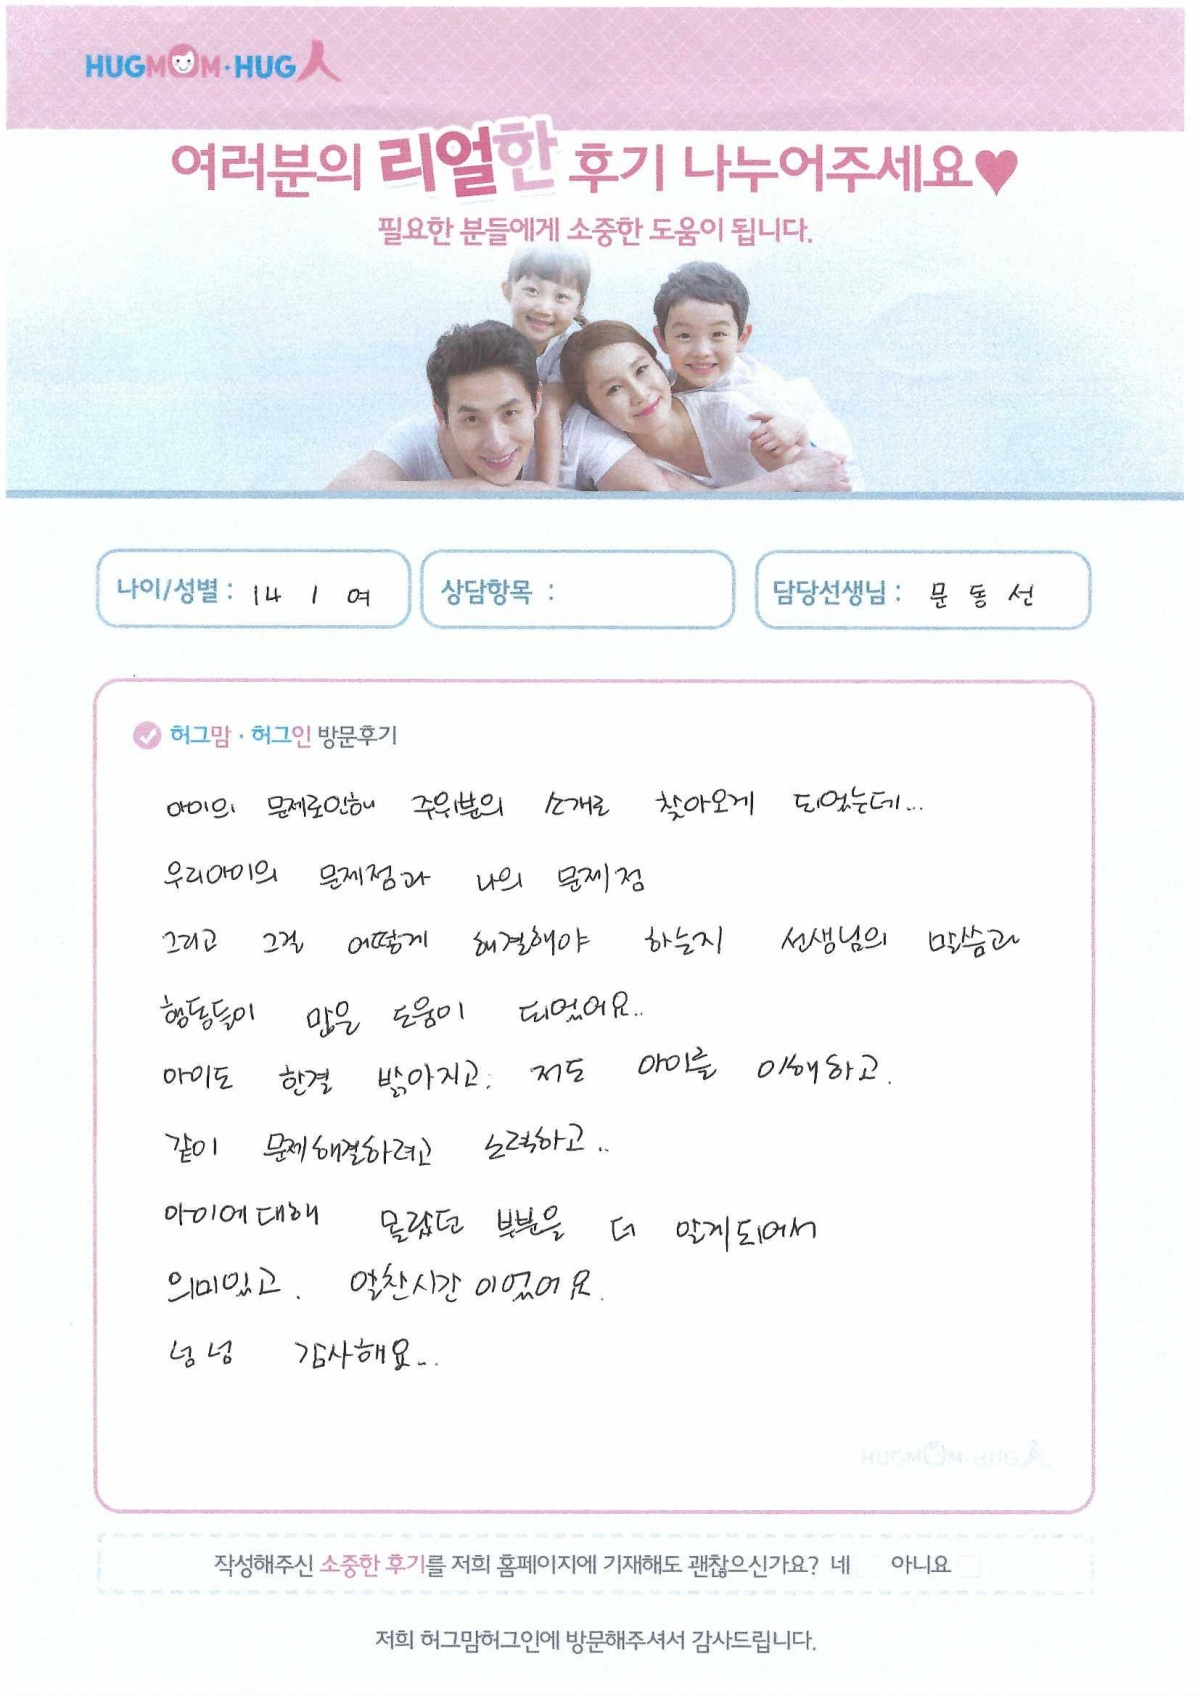 HUGMOM·HUG人
여러분의 리얼한 후기 나누어주세요♥
필요한 분들에게 소중한 도움이 됩니다.
나이/성별 : 14 / 여
상담항목 :
담당선생님 : 문동선
허그맘 · 허그인 방문후기
아이의 문제로인해 주위분의 소개로 찾아오게 되었는데...
우리아이의 문제점과 나의 문제점
그리고 그걸 어떻게 해결해야 하는지 선생님의 말씀과
행동들이 많은 도움이 되었어요..
아이도 한결 밝아지고. 저도 아이를 이해하고.
같이 문제해결하려고 노력하고..
아이에대해 몰랐던 부분을 더 알게되어서
의미있고. 알찬시간이었어요.
넝넝 감사해요...
작성해주신 소중한 후기를 저희 홈페이지에 기재해도 괜찮으신가요? 네 아니요
저희 허그맘허그인에 방문해주셔서 감사드립니다.